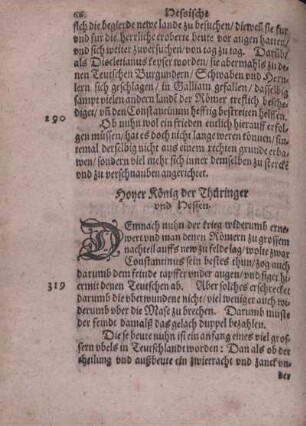 66 Hessische
sich die begierde newe lande zu besuchen / dieweil sie für
und für die herrliche eroberte beute vor augen hatten /
und sich weiter zuversuchen / von tag zu tag. Darumb /
als Diocletianus keyser worden / sie abermahls zu de-
nen Teutschen Burgundern / Schwaben und Heru-
lern sich geschlagen / in Galliam gefallen / dasselbig
sampt vielen andern landẽ der Römer trefflich beschе-
diget / uñ den Constantinum hefftig bestreiten helffen.
290 Ob nuhn wol ein frieden entlich hierauff erfol-
gen müssen / hat es doch nicht lange weren können / sin-
temal derselbig nicht aus einem rechten grunde erba-
wen / sondern viel mehr sich inner demselben zu stercken
und zu verschnauben angerichtet.
Hoyer König der Thüringer
und Hessen.
DEmnach nuhn der krieg widerumb erne-
wert und man denen Römern zu grossem
nachteil auffs new zu felde lag / wolte zwar
Constantinus sein bestes thun / zog auch
darumb dem feinde tapffer under augen / und sieget hier-
319 mit denen Teutschen ab. Aber solches erschrecket
darumb die uberwundene nicht / viel weniger auch wi-
derumb uber die Mase zu brechen. Darumb muste
der feindt damalß das gelach duppel bezahlen.
Diese beute nuhn ist ein anfang eines viel gros-
sern ubels in Teutschlandt worden: Dan als ob der
theilung und außbeute ein zwietracht und zanck un-
der